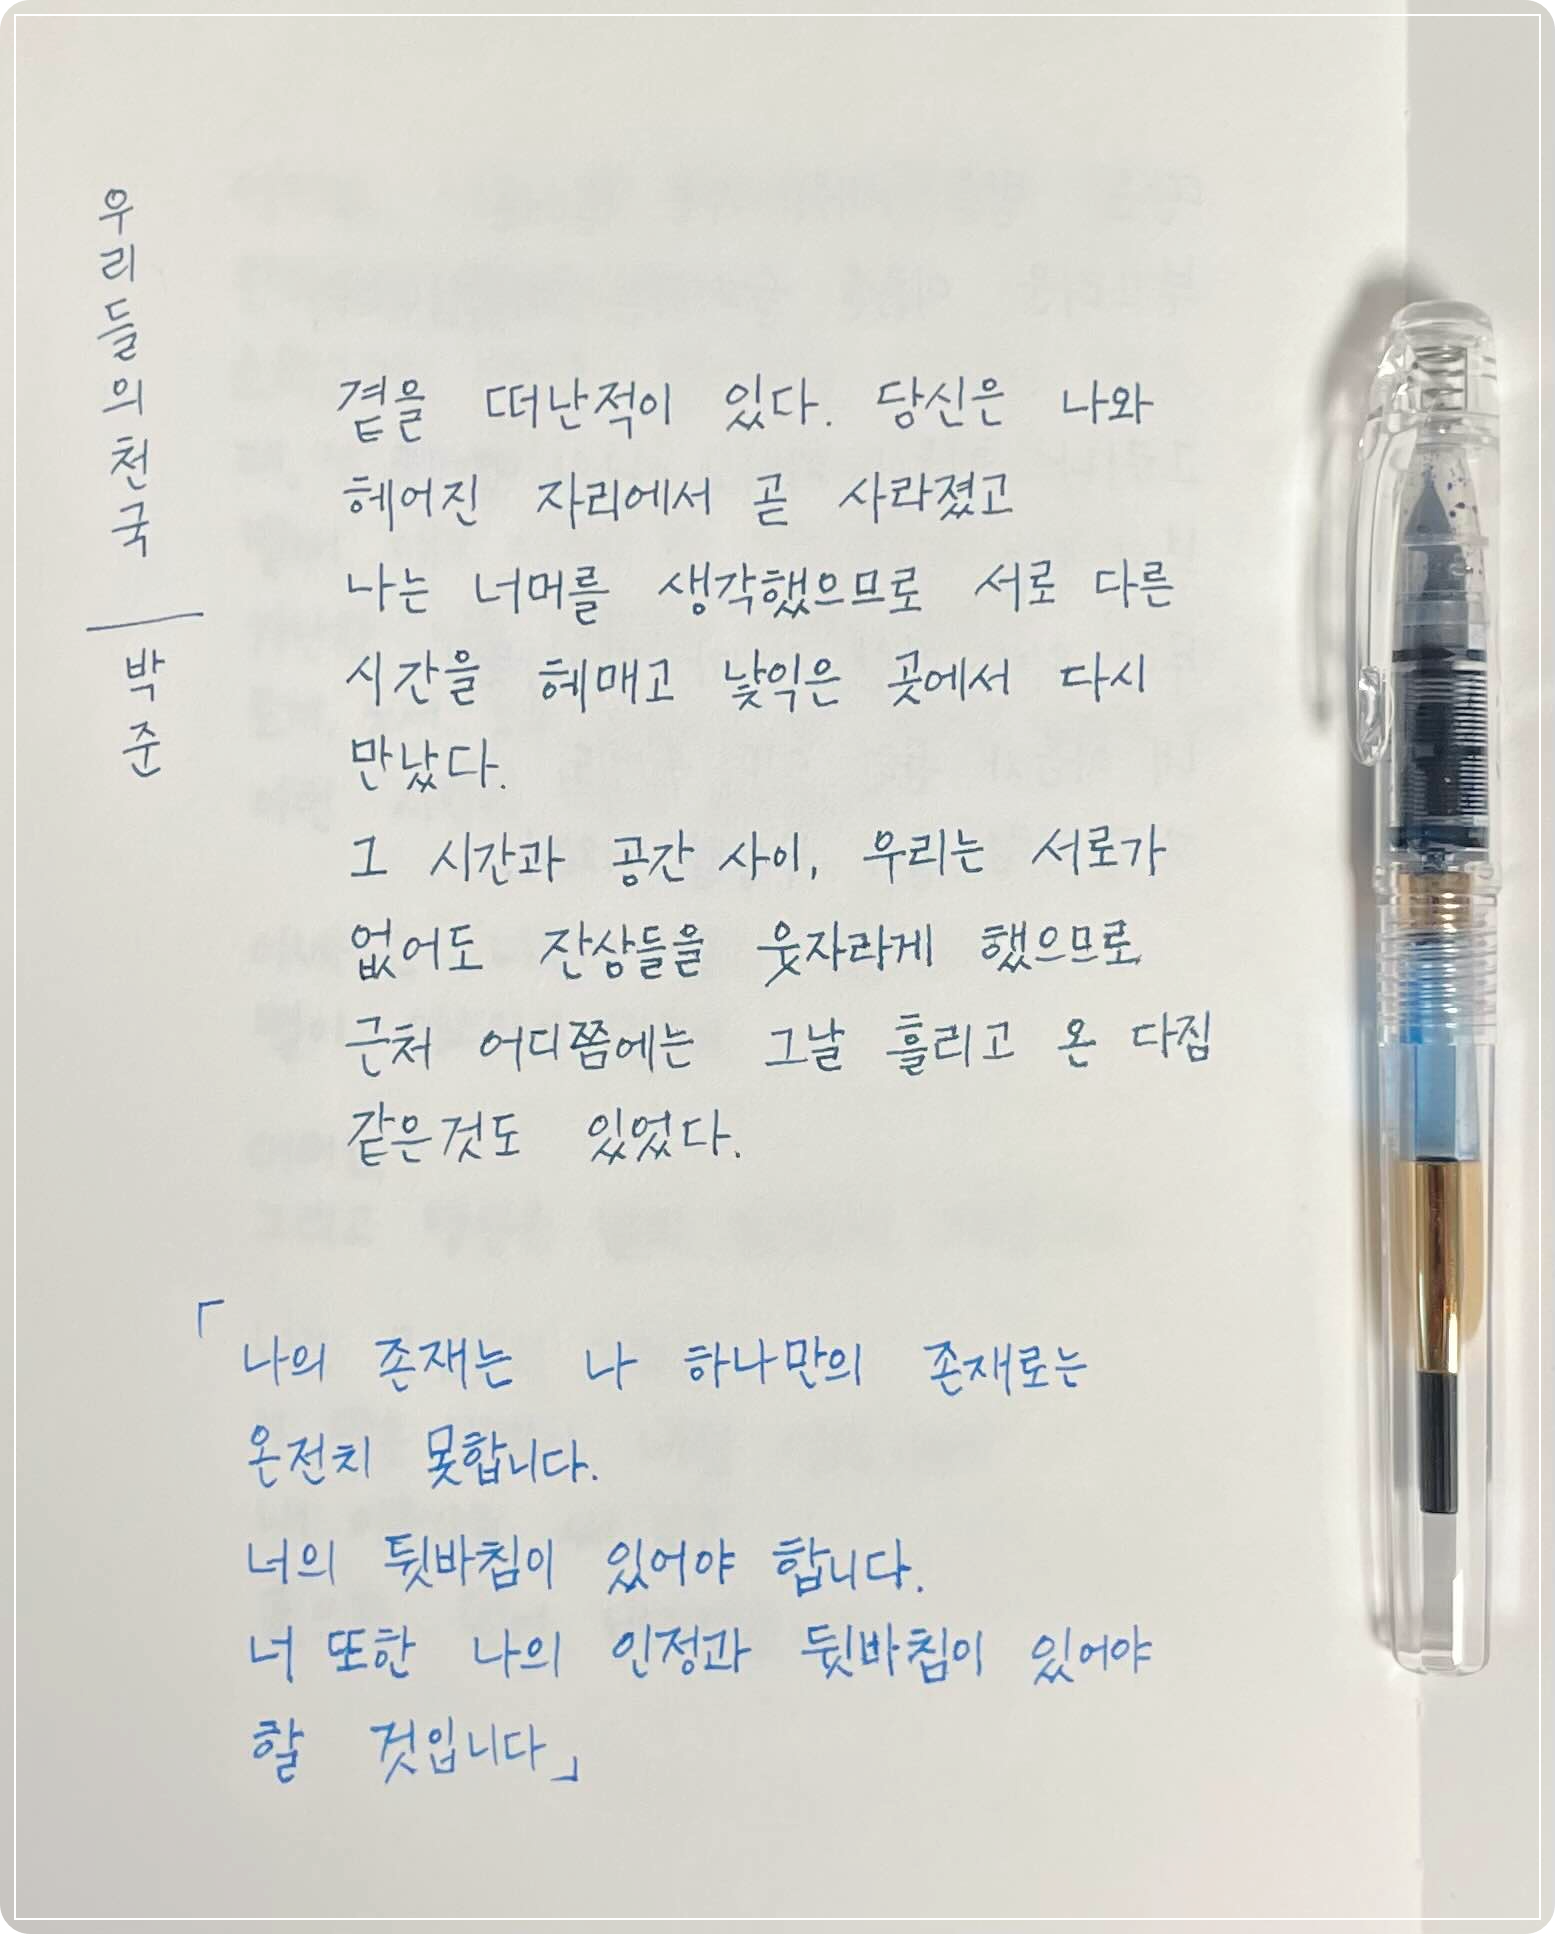 우리들의 천국
박준
곁을 떠난적이 있다. 당신은 나와
헤어진 자리에서 곧 사라졌고
나는 너머를 생각했으므로 서로 다른
시간을 헤매고 낯익은 곳에서 다시
만났다.
그 시간과 공간 사이, 우리는 서로가
없어도 잔상들을 웃자라게 했으므로
근처 어디쯤에는 그날 흘리고 온 다짐
같은것도 있었다.
「나의 존재는 나 하나만의 존재로는
온전치 못합니다.
너의 뒷바침이 있어야 합니다.
너 또한 나의 인정과 뒷바침이 있어야
할 것입니다」